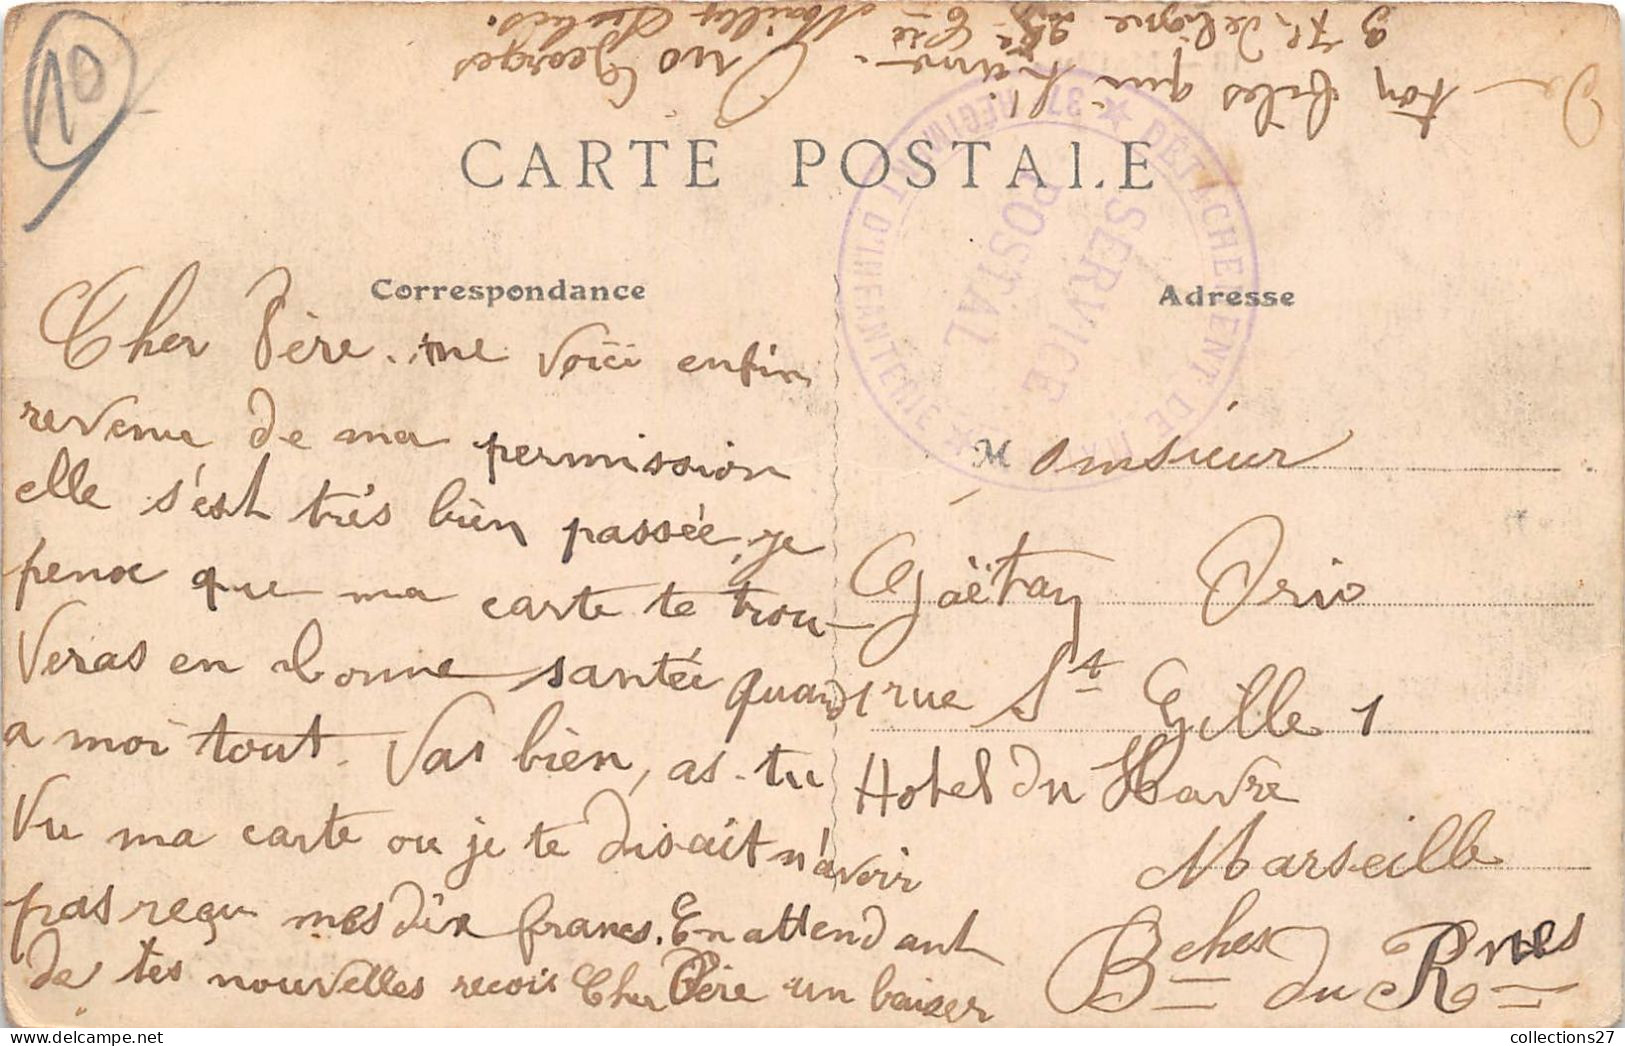 10
CARTE POSTALE
Correspondance
Adresse
37e RÉGIMENT D'INFANTERIE
DÉTACHEMENT DE
SERVICE
POSTAL
Cher Père. me voici enfin
revenu de ma permission
elle s'est très bien passée, je
pense que ma carte te trou-
veras en bonne santée quand
a moi tout. Vas bien, as-tu
vu ma carte ou je te disait n'avoir
pas reçu mes dix francs. En attendant
de tes nouvelles recois Cher Père un baiser
De
ton fils qui t'aime.
Orio Georges
37e de ligne 28e Cie
Mailly
Monsieur
Gaëtan Orio
rue St Gille 1
Hotel du Havre
Marseille
Bches du Rnes
collections27